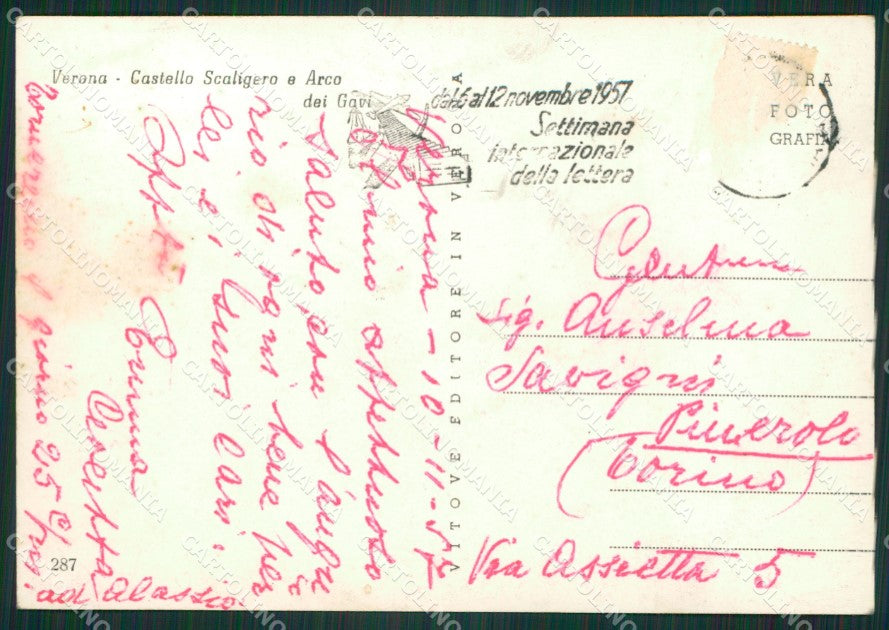 Verona - Castello Scaligero e Arco
dei Gavi
dal 6 al 12 novembre 1957
Settimana
internazionale
della lettera
VERA
FOTO
GRAFIA
VITOVE EDITORE IN VERONA
Verona - 10-11-57
Il mio affettuoso
saluto con l'augu
rio di ogni bene per
lei e i suoi cari
Aff.ma
Emma
Torneremo il giorno 25 c/
ad Alassio
Gentma
Sig. Anselma
Savigni
Pinerolo
(Torino)
Via Assietta 5
287
CARTOLINOMANIA